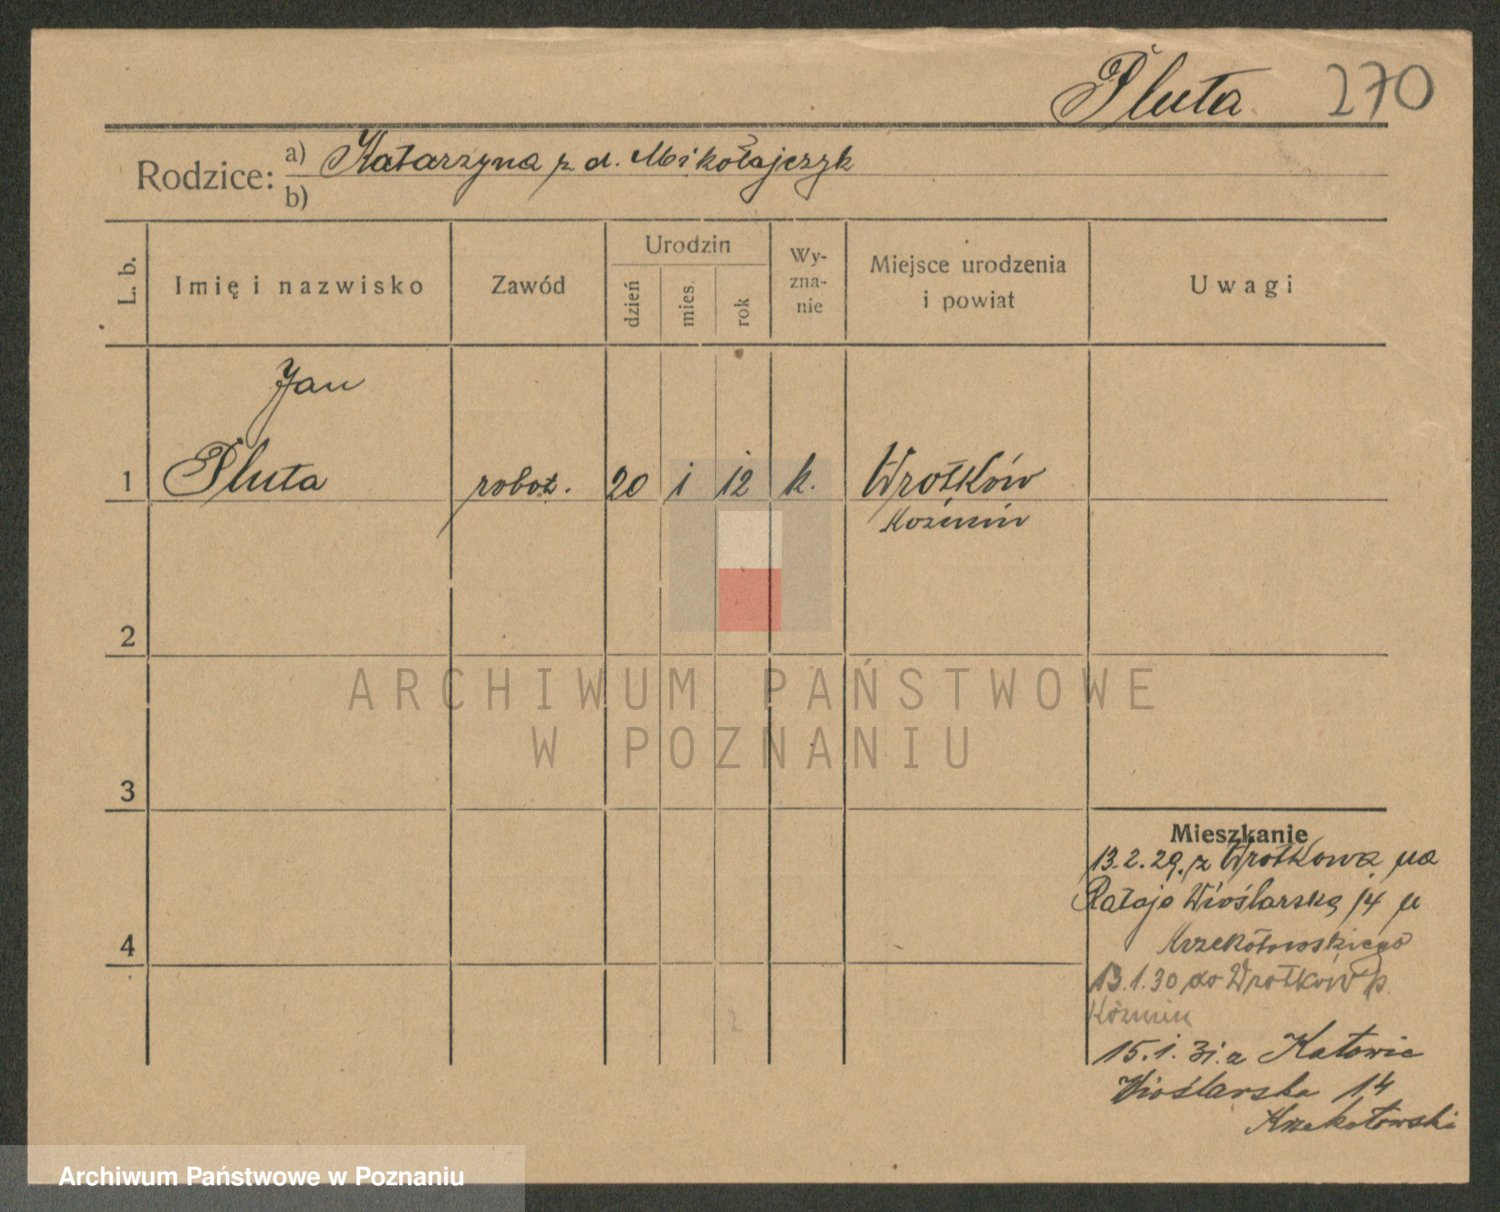 Pluta 270
Rodzice: a) Katarzyna z d. Mikołajczyk
b)
L. b. Imię i nazwisko Zawód Urodzin dzień mies. rok Wy-zna-nie Miejsce urodzenia i powiat Uwagi
Jan
1 Pluta robot. 20 1 12 k. Wrotków
Koźmin
2
ARCHIWUM PAŃSTWOWE
W POZNANIU
3
Mieszkanie
13.2.29. z Wrotkowa na
Rataje Wioślarska 14 u
4 Krzekotowskiego
13.1.30 do Wrotków p.
Koźmin
15.1.31. z Katowic
Wioślarska 14
Krzekotowski
Archiwum Państwowe w Poznaniu